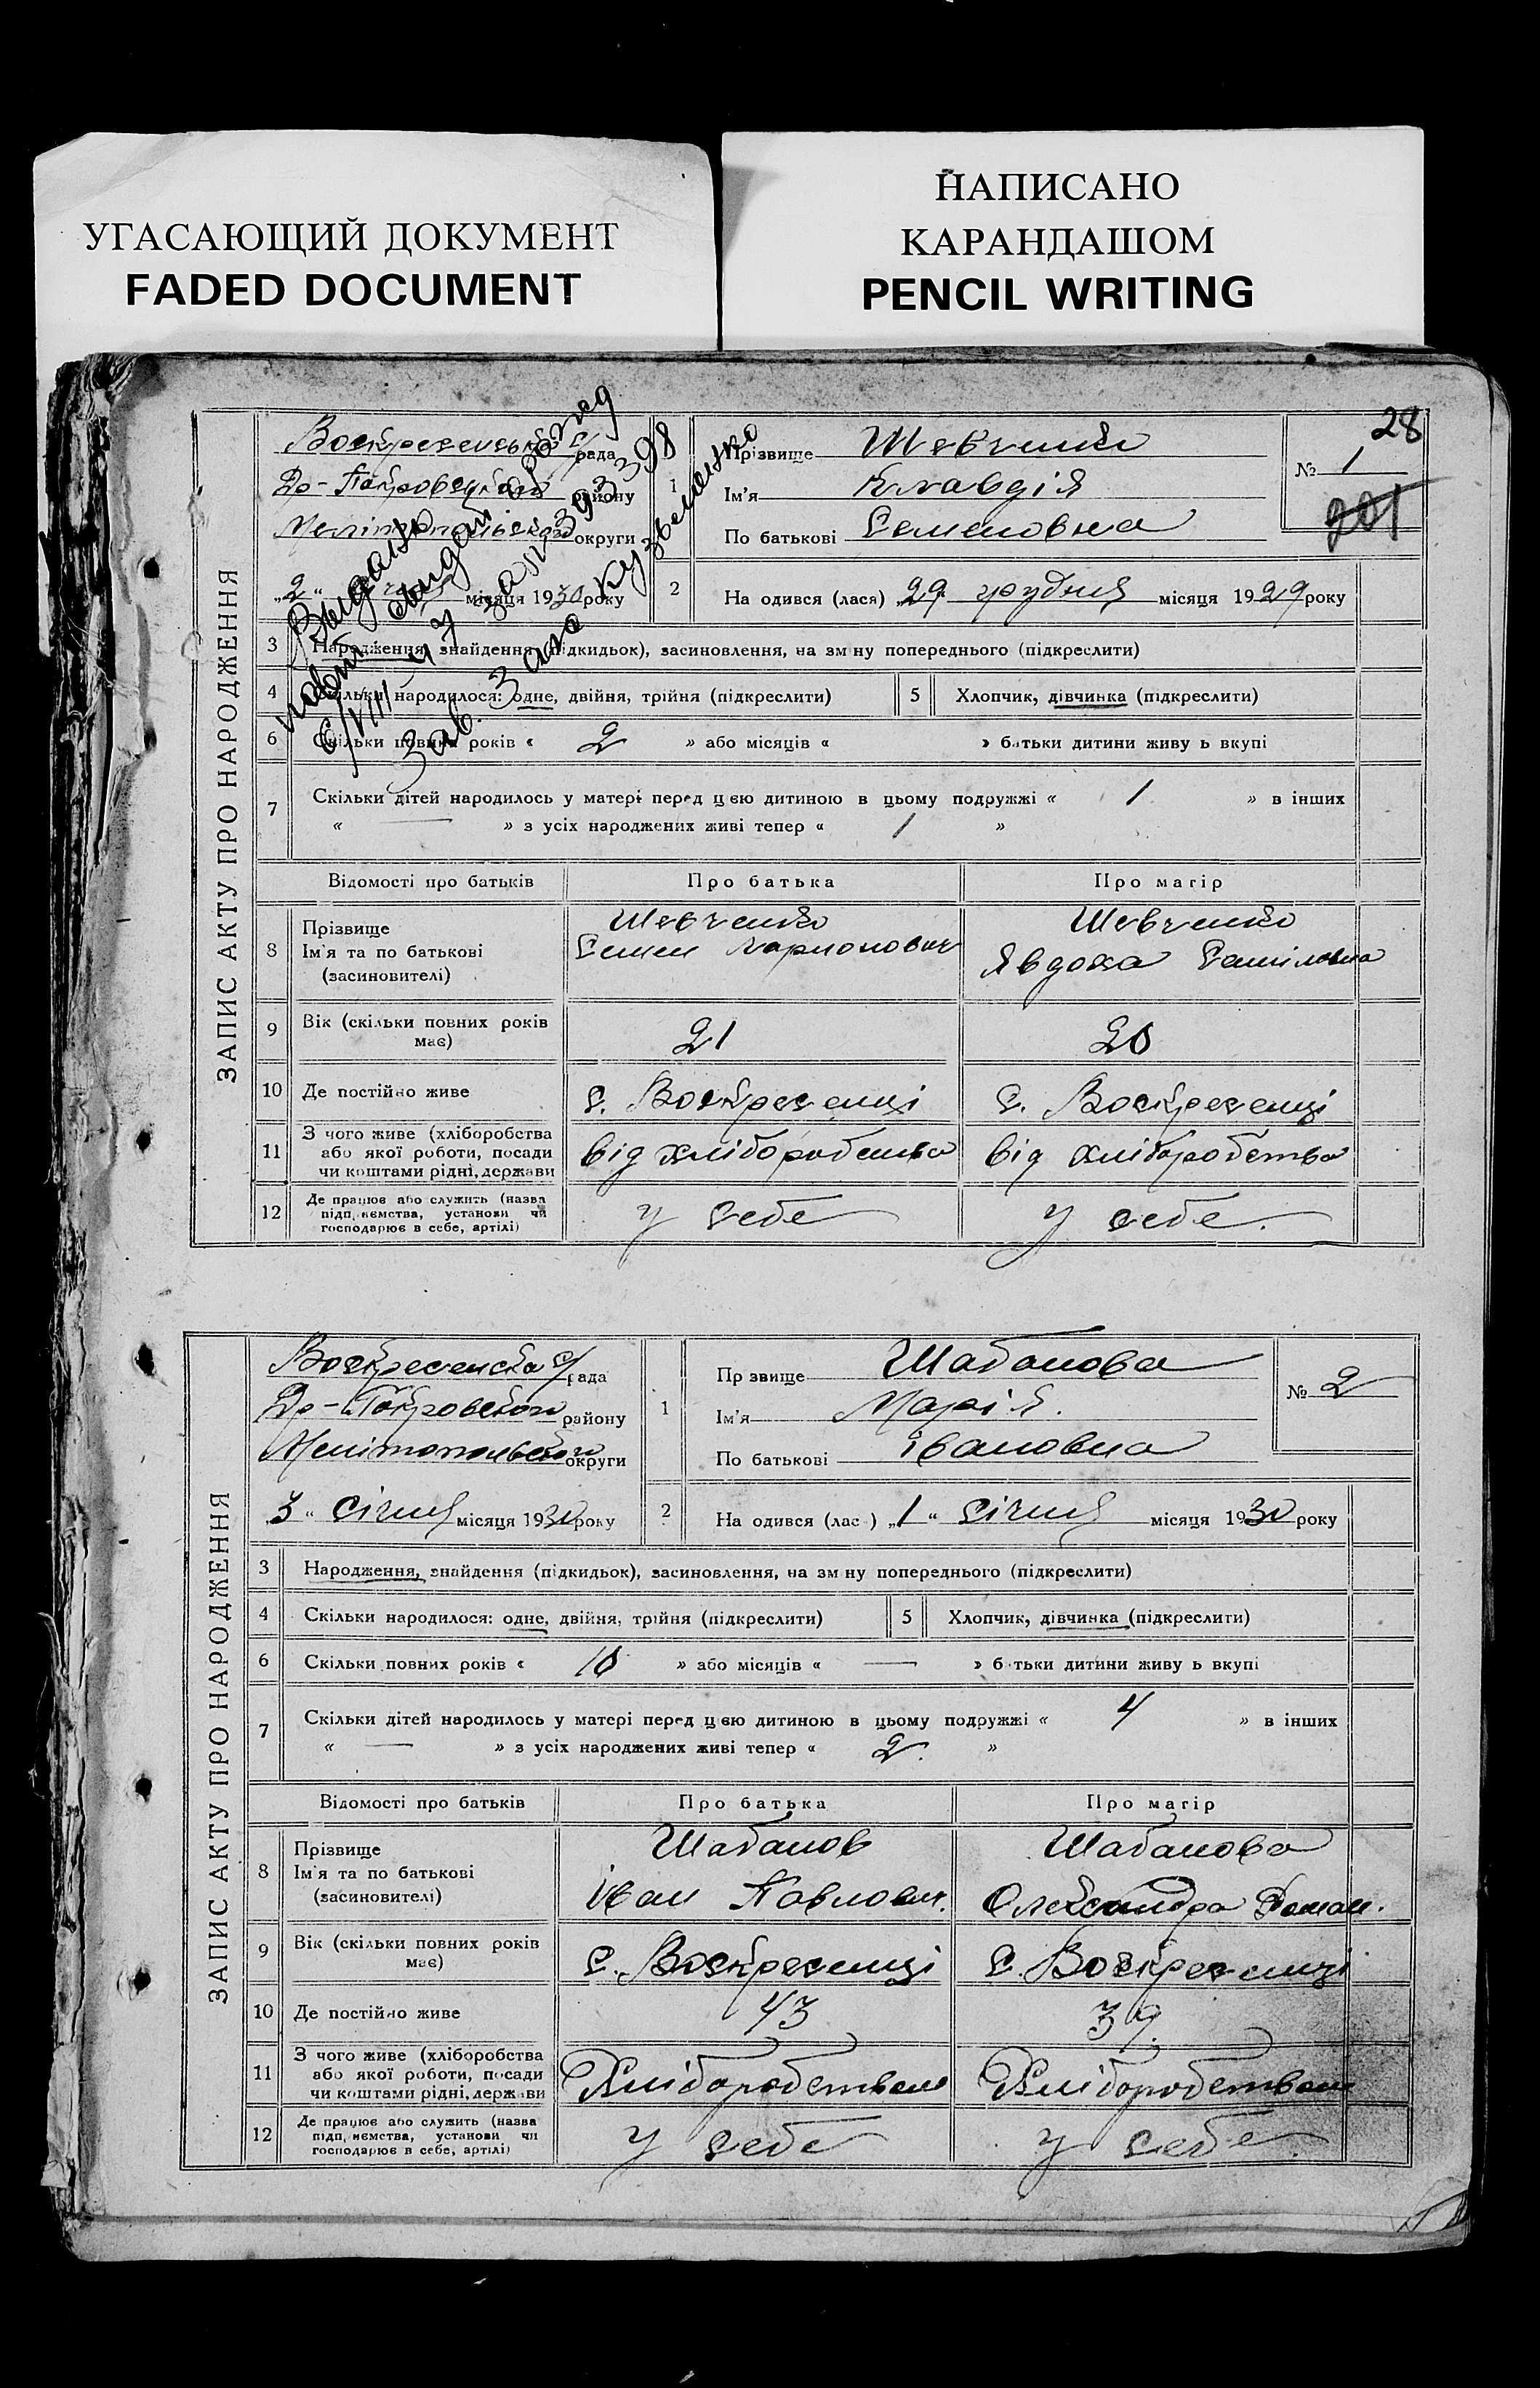 УГАСАЮЩИЙ ДОКУМЕНТ
FADED DOCUMENT
НАПИСАНО
КАРАНДАШОМ
PENCIL WRITING
28
ЗАПИС АКТУ ПРО НАРОДЖЕННЯ
Воскресенська с/рада
району
округи
„2“ місяця 1930 року
1 Прізвище Шевченко
Ім'я Клавдія
По батькові Семеновна
№ 1
201
2 На одився (лася) „29“ грудня місяця 1929 року
3 Народження, знайдення (підкидьок), засиновлення, на зм ну попереднього (підкреслити)
4 Скільки народилося: одне, двійня, трійня (підкреслити) 5 Хлопчик, дівчинка (підкреслити)
6 Скільки повних років « 2 » або місяців « » батьки дитини живу ь вкупі
7 Скільки дітей народилось у матері перед цією дитиною в цьому подружжі « 1 » в інших
« — » з усіх народжених живі тепер « 1 »
Відомості про батьків Про батька Про матір
8 Прізвище Шевченко Шевченко
Ім'я та по батькові Семен Ларионович Явдоха
(засиновителі)
9 Вік (скільки повних років має) 21 20
10 Де постійно живе с. Воскресенці с. Воскресенці
11 З чого живе (хліборобства
або якої роботи, посади від хліборобства від хліборобства
чи коштами рідні, держави
12 Де працює або служить (назва
підп, ємства, установи чи у себе у себе.
господарює в себе, артілі)
Видано
6/VII
Зав. Загс Кузьменко
ЗАПИС АКТУ ПРО НАРОДЖЕННЯ
Воскресенська с/рада
Др-Покровського району
Мелітопольського округи
„3“ січня місяця 1930 року
1 Пр звище Шабанова
Ім'я Марія.
По батькові Івановна
№ 2
2 На одився (лас ) „1“ січня місяця 1930 року
3 Народження, знайдення (підкидьок), засиновлення, на зм ну попереднього (підкреслити)
4 Скільки народилося: одне, двійня, трійня (підкреслити) 5 Хлопчик, дівчинка (підкреслити)
6 Скільки повних років « 10 » або місяців « — » б тьки дитини живу ь вкупі
7 Скільки дітей народилось у матері перед цією дитиною в цьому подружжі « 4 » в інших
« — » з усіх народжених живі тепер « 2. »
Відомості про батьків Про батька Про матір
8 Прізвище Шабанов Шабанова
Ім'я та по батькові Іван Павлович. Олександра Роман.
(засиновителі)
9 Вік (скільки повних років має) с. Воскресенці с. Воскресенці
10 Де постійно живе 43 39.
11 З чого живе (хліборобства
або якої роботи, посади Хліборобством Хліборобством
чи коштами рідні, держави
12 Де працює або служить (назва
підп, ємства, установи чи у себе у себе.
господарює в себе, артілі)